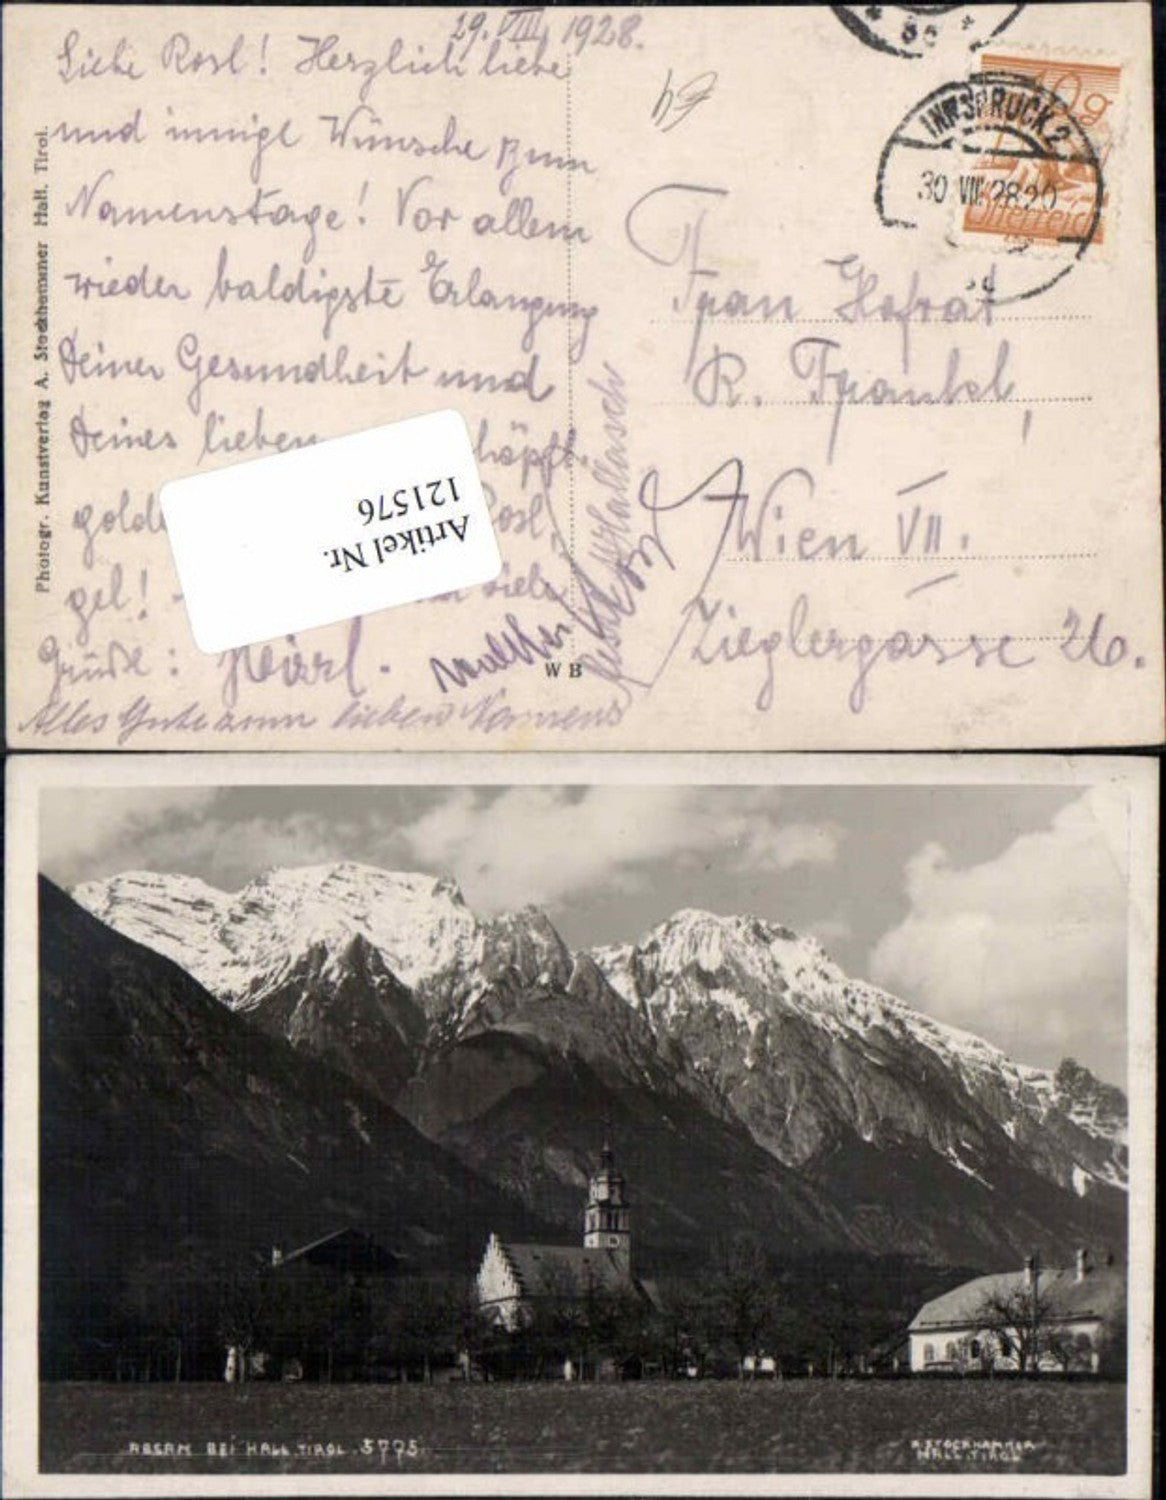 29. VIII. 1928.
Liebe Rosl! Herzlich liebe
und innige Wünsche zum
Namenstage! Vor allem
wieder baldigste Erlangung
Deiner Gesundheit und
Deines lieben
gold Rosl,
gel! viele
Grüße:
Walther
Alles Gute zum lieben Namens
Photogr. Kunstverlag A. Stockhammer Hall, Tirol.
Artikel Nr.
121576
W B
INNSBRUCK 2
30 VIII 28 20
10 g
Österreich
Frau Hofrat
R. Frankl,
Wien VII.
Zieglergasse 26.
ABSAM BEI HALL. TIROL. 5775.
A. STOCKHAMMER
HALL. TIROL